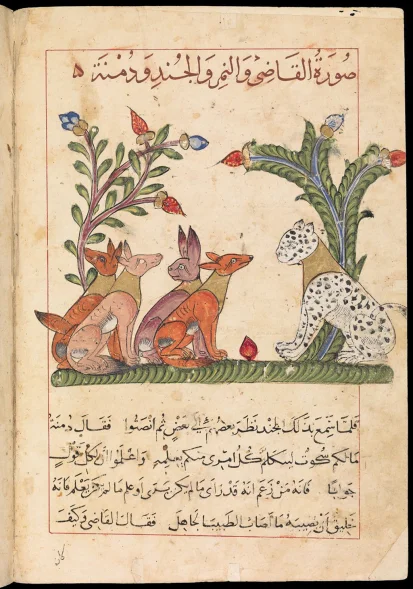 صورة القاضي والنمر والجند ودمنة ه
فلما سمع بذلك الجند نظر بعضهم الى بعض ثم انصتوا فقال دمنة
ما لكم سكوت ليتكلم كل امرئ منكم بعلمه واعلموا ان لكل قول
جوابا فانه من زعم انه قد راى ما لم يكن يرى او علم ما لم يكن يعلم فانه
خليق ان يصيبه ما اصاب الطبيب الجاهل فقال القاضي وكيف